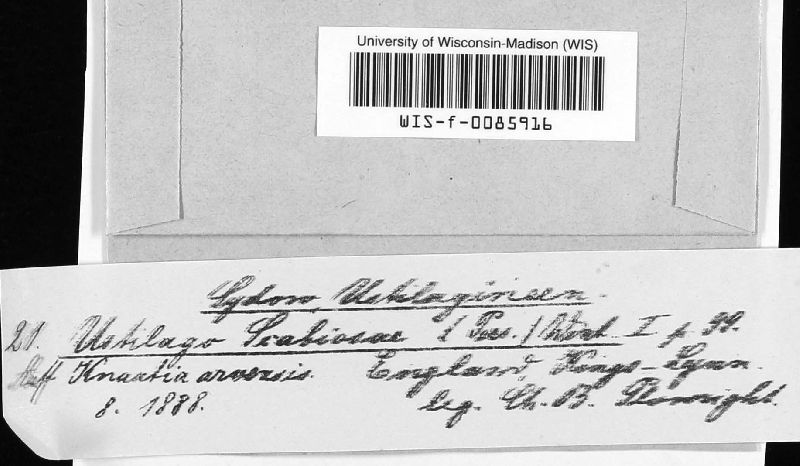 University of Wisconsin-Madison (WIS)
WIS-f-0085916
Sydow, Ustilagineen.
21. Ustilago Scabiosae (Pers.) Wint. I p. 99.
Auf Knautia arvensis. England, Kings-Lynn.
8. 1888. leg. Ch. B. Plowright.